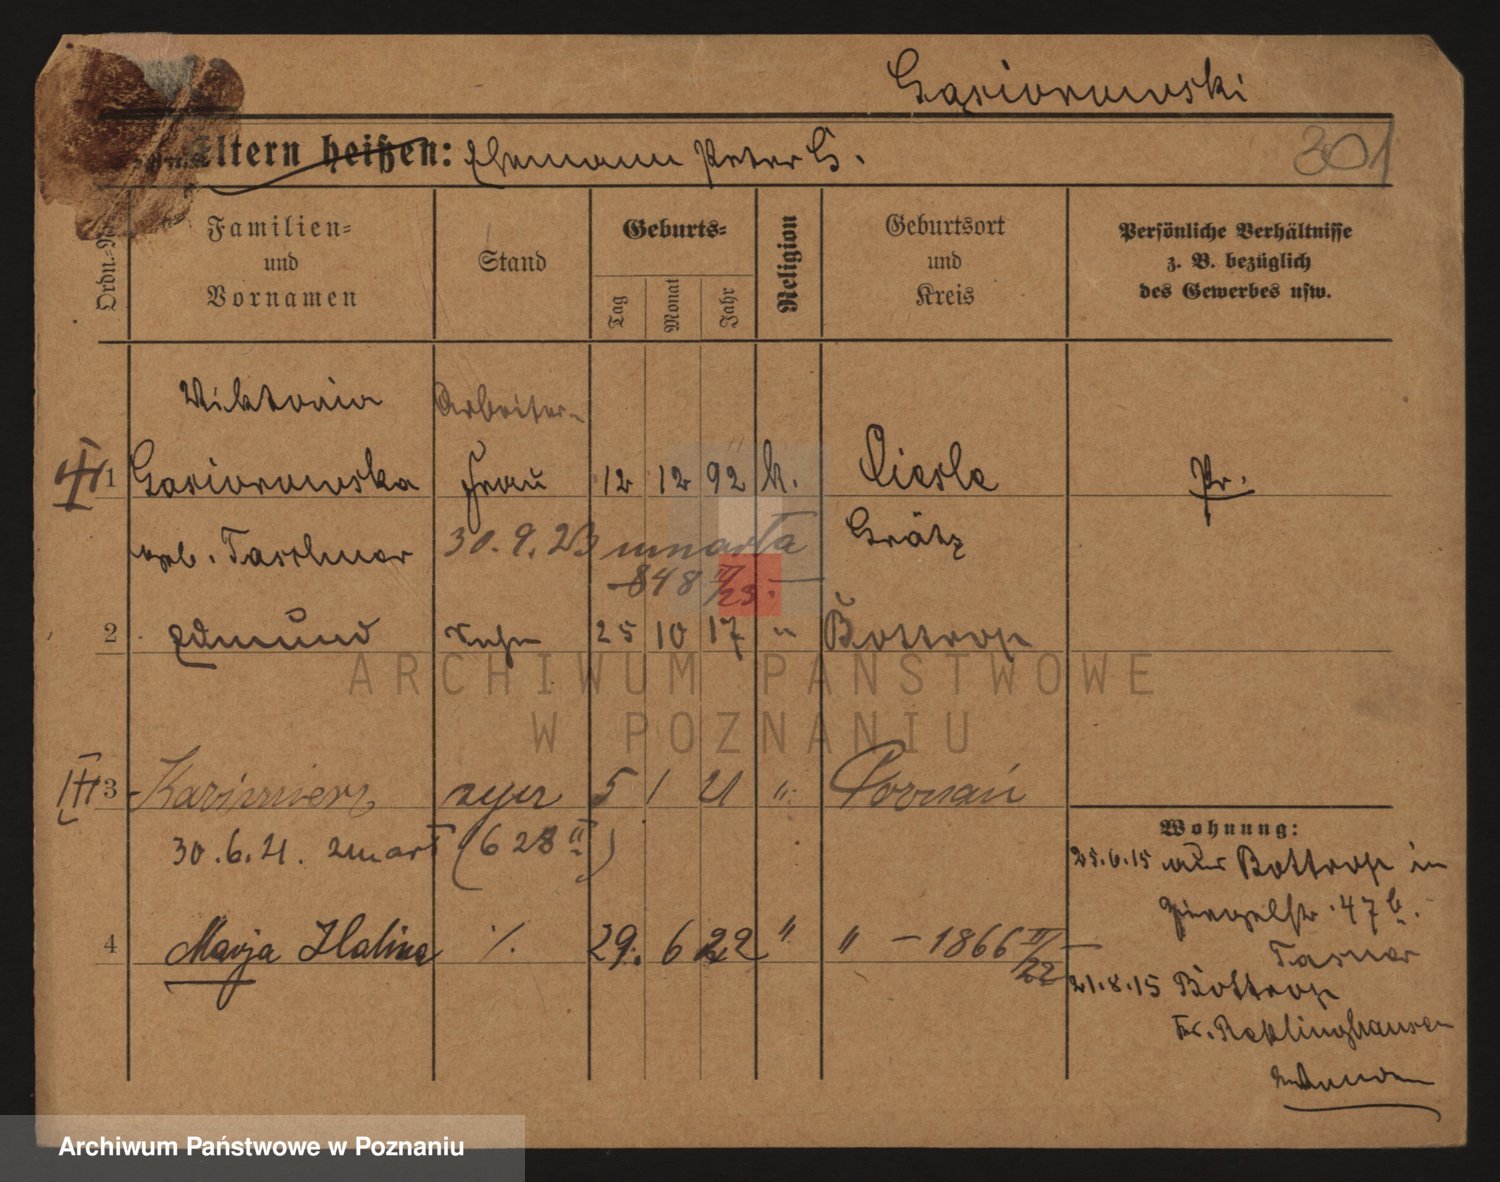 Gąsiorowski
Eltern heißen: Ehemann Peter G.
301
Ordn.-Nr.
Familien-
und
Vornamen
Stand
Geburts-
Tag
Monat
Jahr
Religion
Geburtsort
und
Kreis
Persönliche Verhältnisse
z. B. bezüglich
des Gewerbes usw.
Viktoria Arbeiter-
1 Gasiorowska Frau 12 12 92 k. Ciesle Pr.
geb. Grätz
30.9.23 umarła
848 II/23.
2 Edmund Sohn 25 10 17 " Bottrop
3 Kazimierz syn 5 1 21 " Poznań
30.6.21. zmarł (628 II)
4 Marja Halina % 29. 6 22 " " - 1866 II/22 -
Wohnung:
25.6.15 aus Bottrop in
47 b.
21.8.15 Bottrop
Kr. Recklinghausen
ARCHIWUM PAŃSTWOWE
W POZNANIU
Archiwum Państwowe w Poznaniu